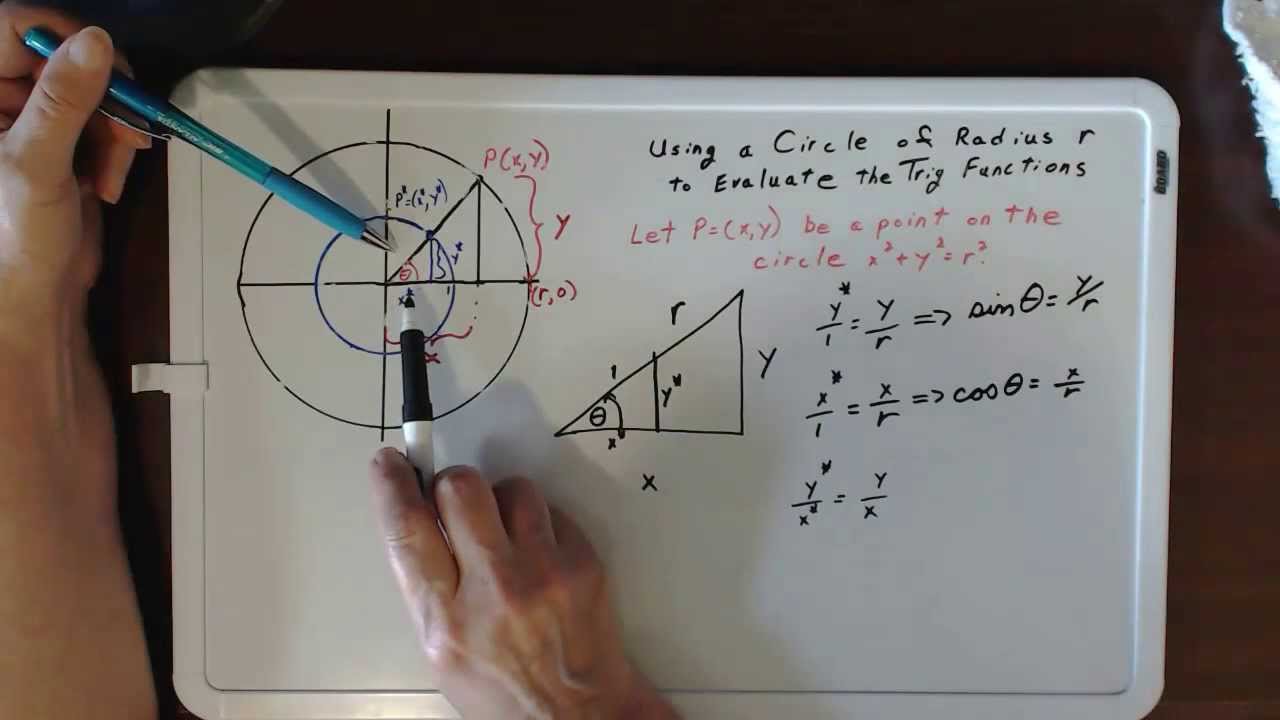 Using a Circle of Radius r
to Evaluate the Trig Functions
Let P=(x,y) be a point on the
circle x²+y²=r².
P(x,y)
P*=(x*,y*)
y
y*
θ
1
(r,0)
x*
x
r
1
y
y*
θ
x
x
y*/1 = y/r => sin θ = y/r
x*/1 = x/r => cos θ = x/r
y*/x* = y/x
BOARD